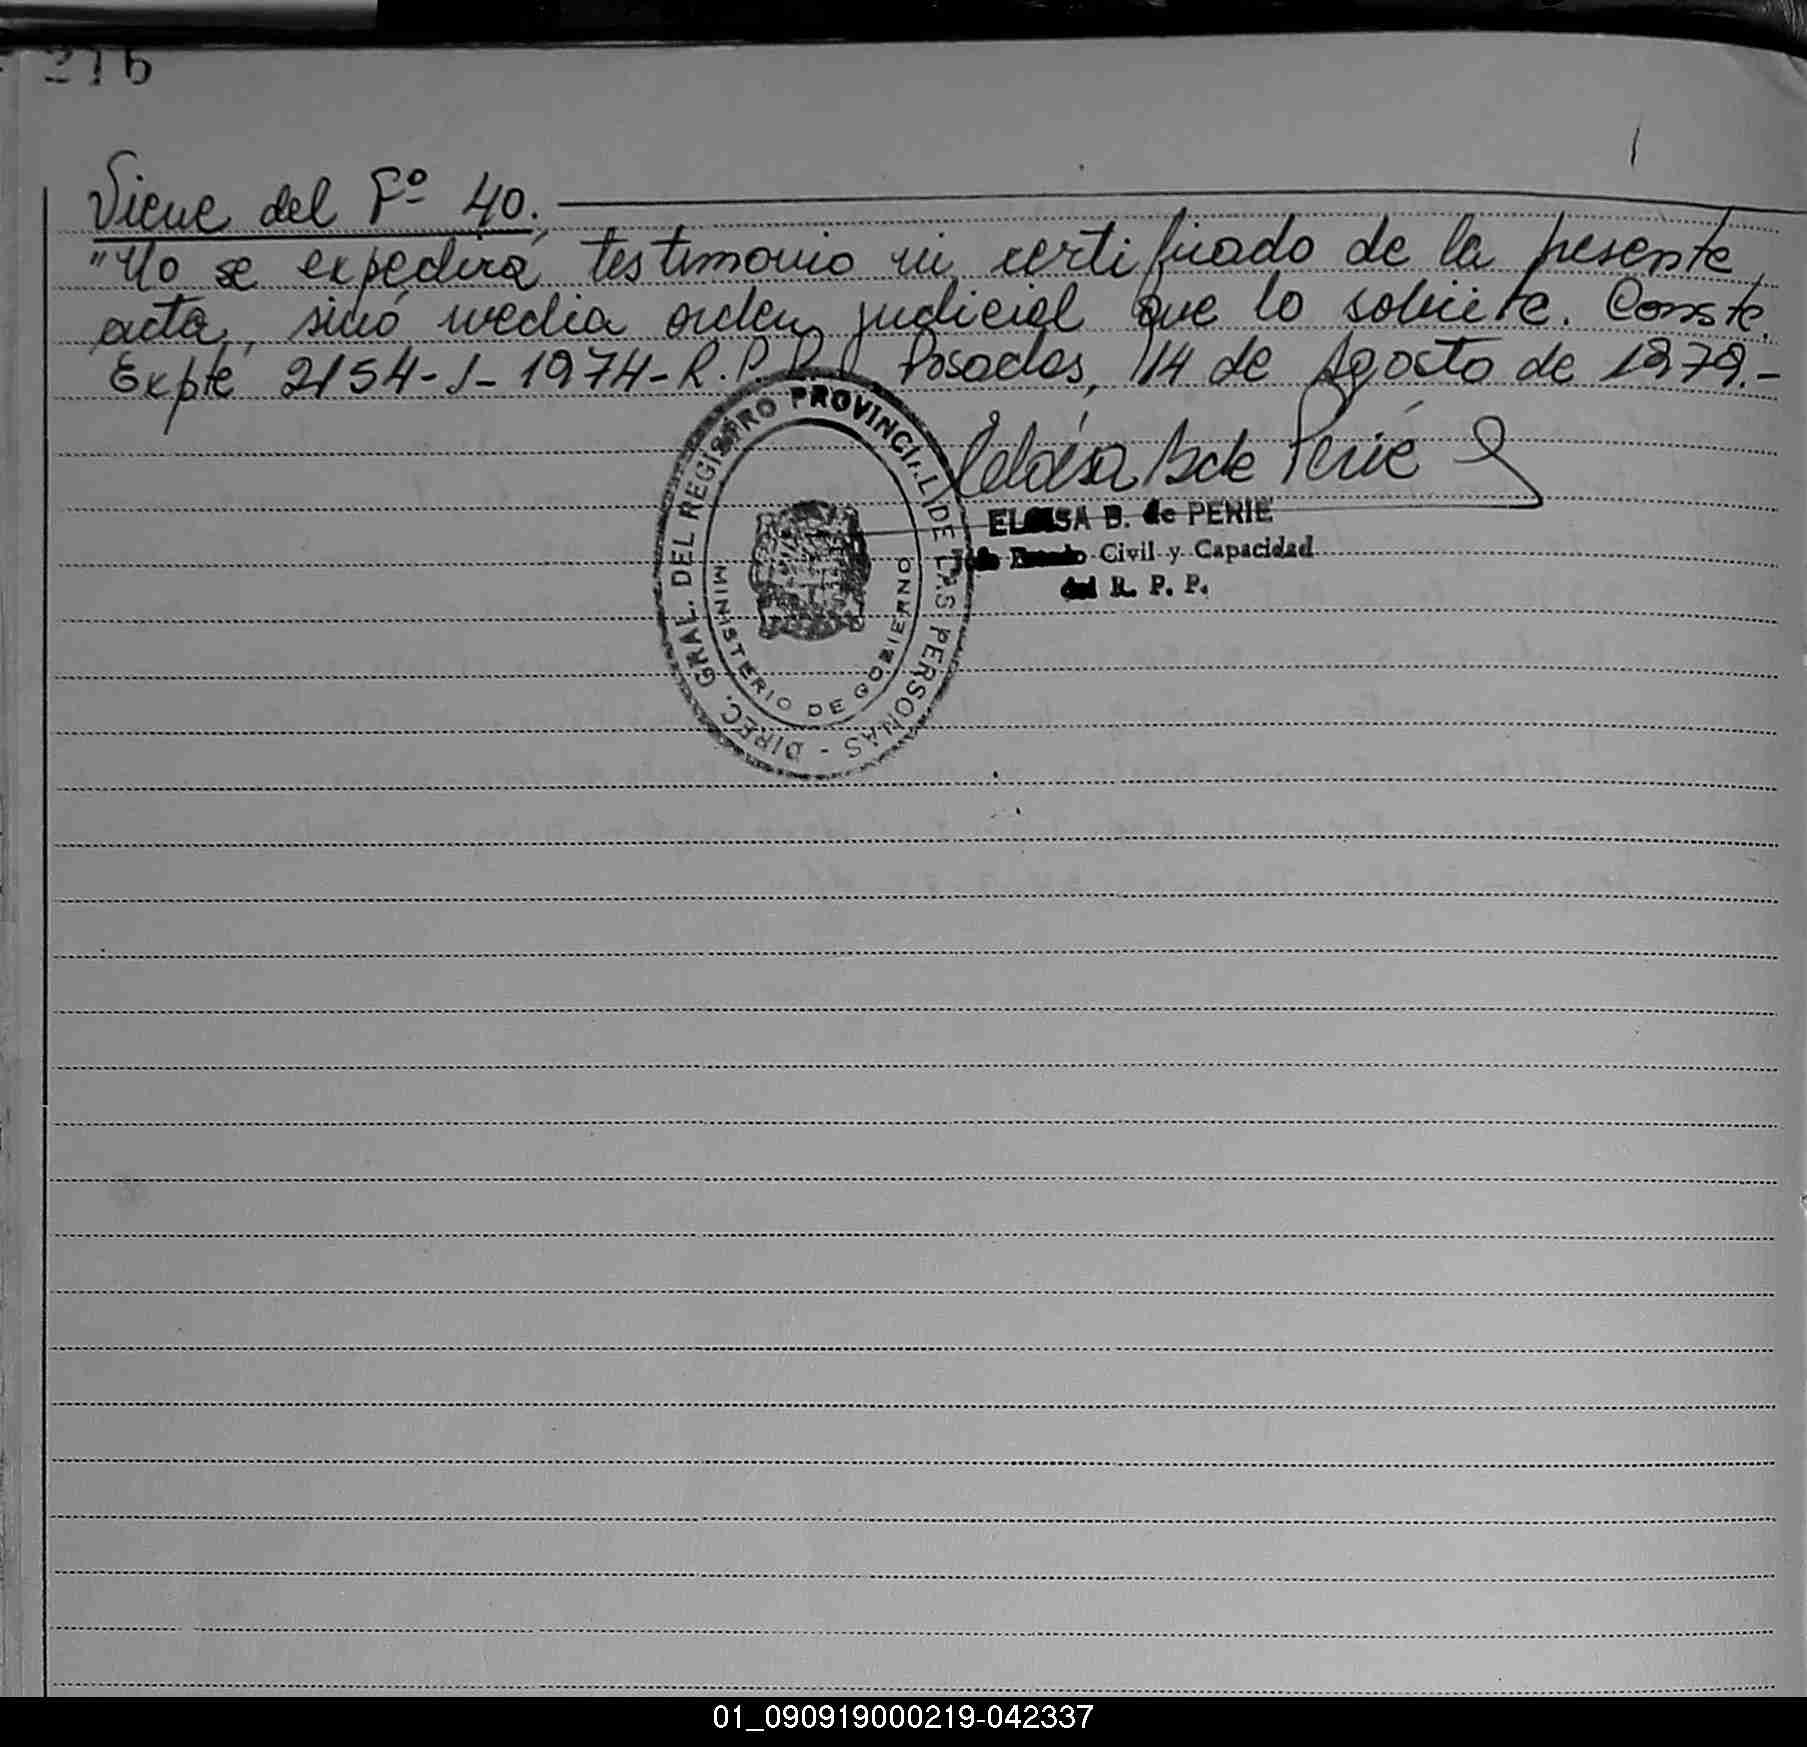 276
Viene del Fº 40.
"No se expedirá testimonio ni certificado de la presente
acta, sinó media orden judicial que lo solicite. Conste.
Expte 2154-J-1974-R.P.P. Posadas, 14 de Agosto de 1979.-
DIREC. GRAL. DEL REGISTRO PROVINCIAL DE LAS PERSONAS -
MINISTERIO DE GOBIERNO
B de Perié
ELOISA B. de PERIE
Civil y Capacidad
del R. P. P.
01_090919000219-042337